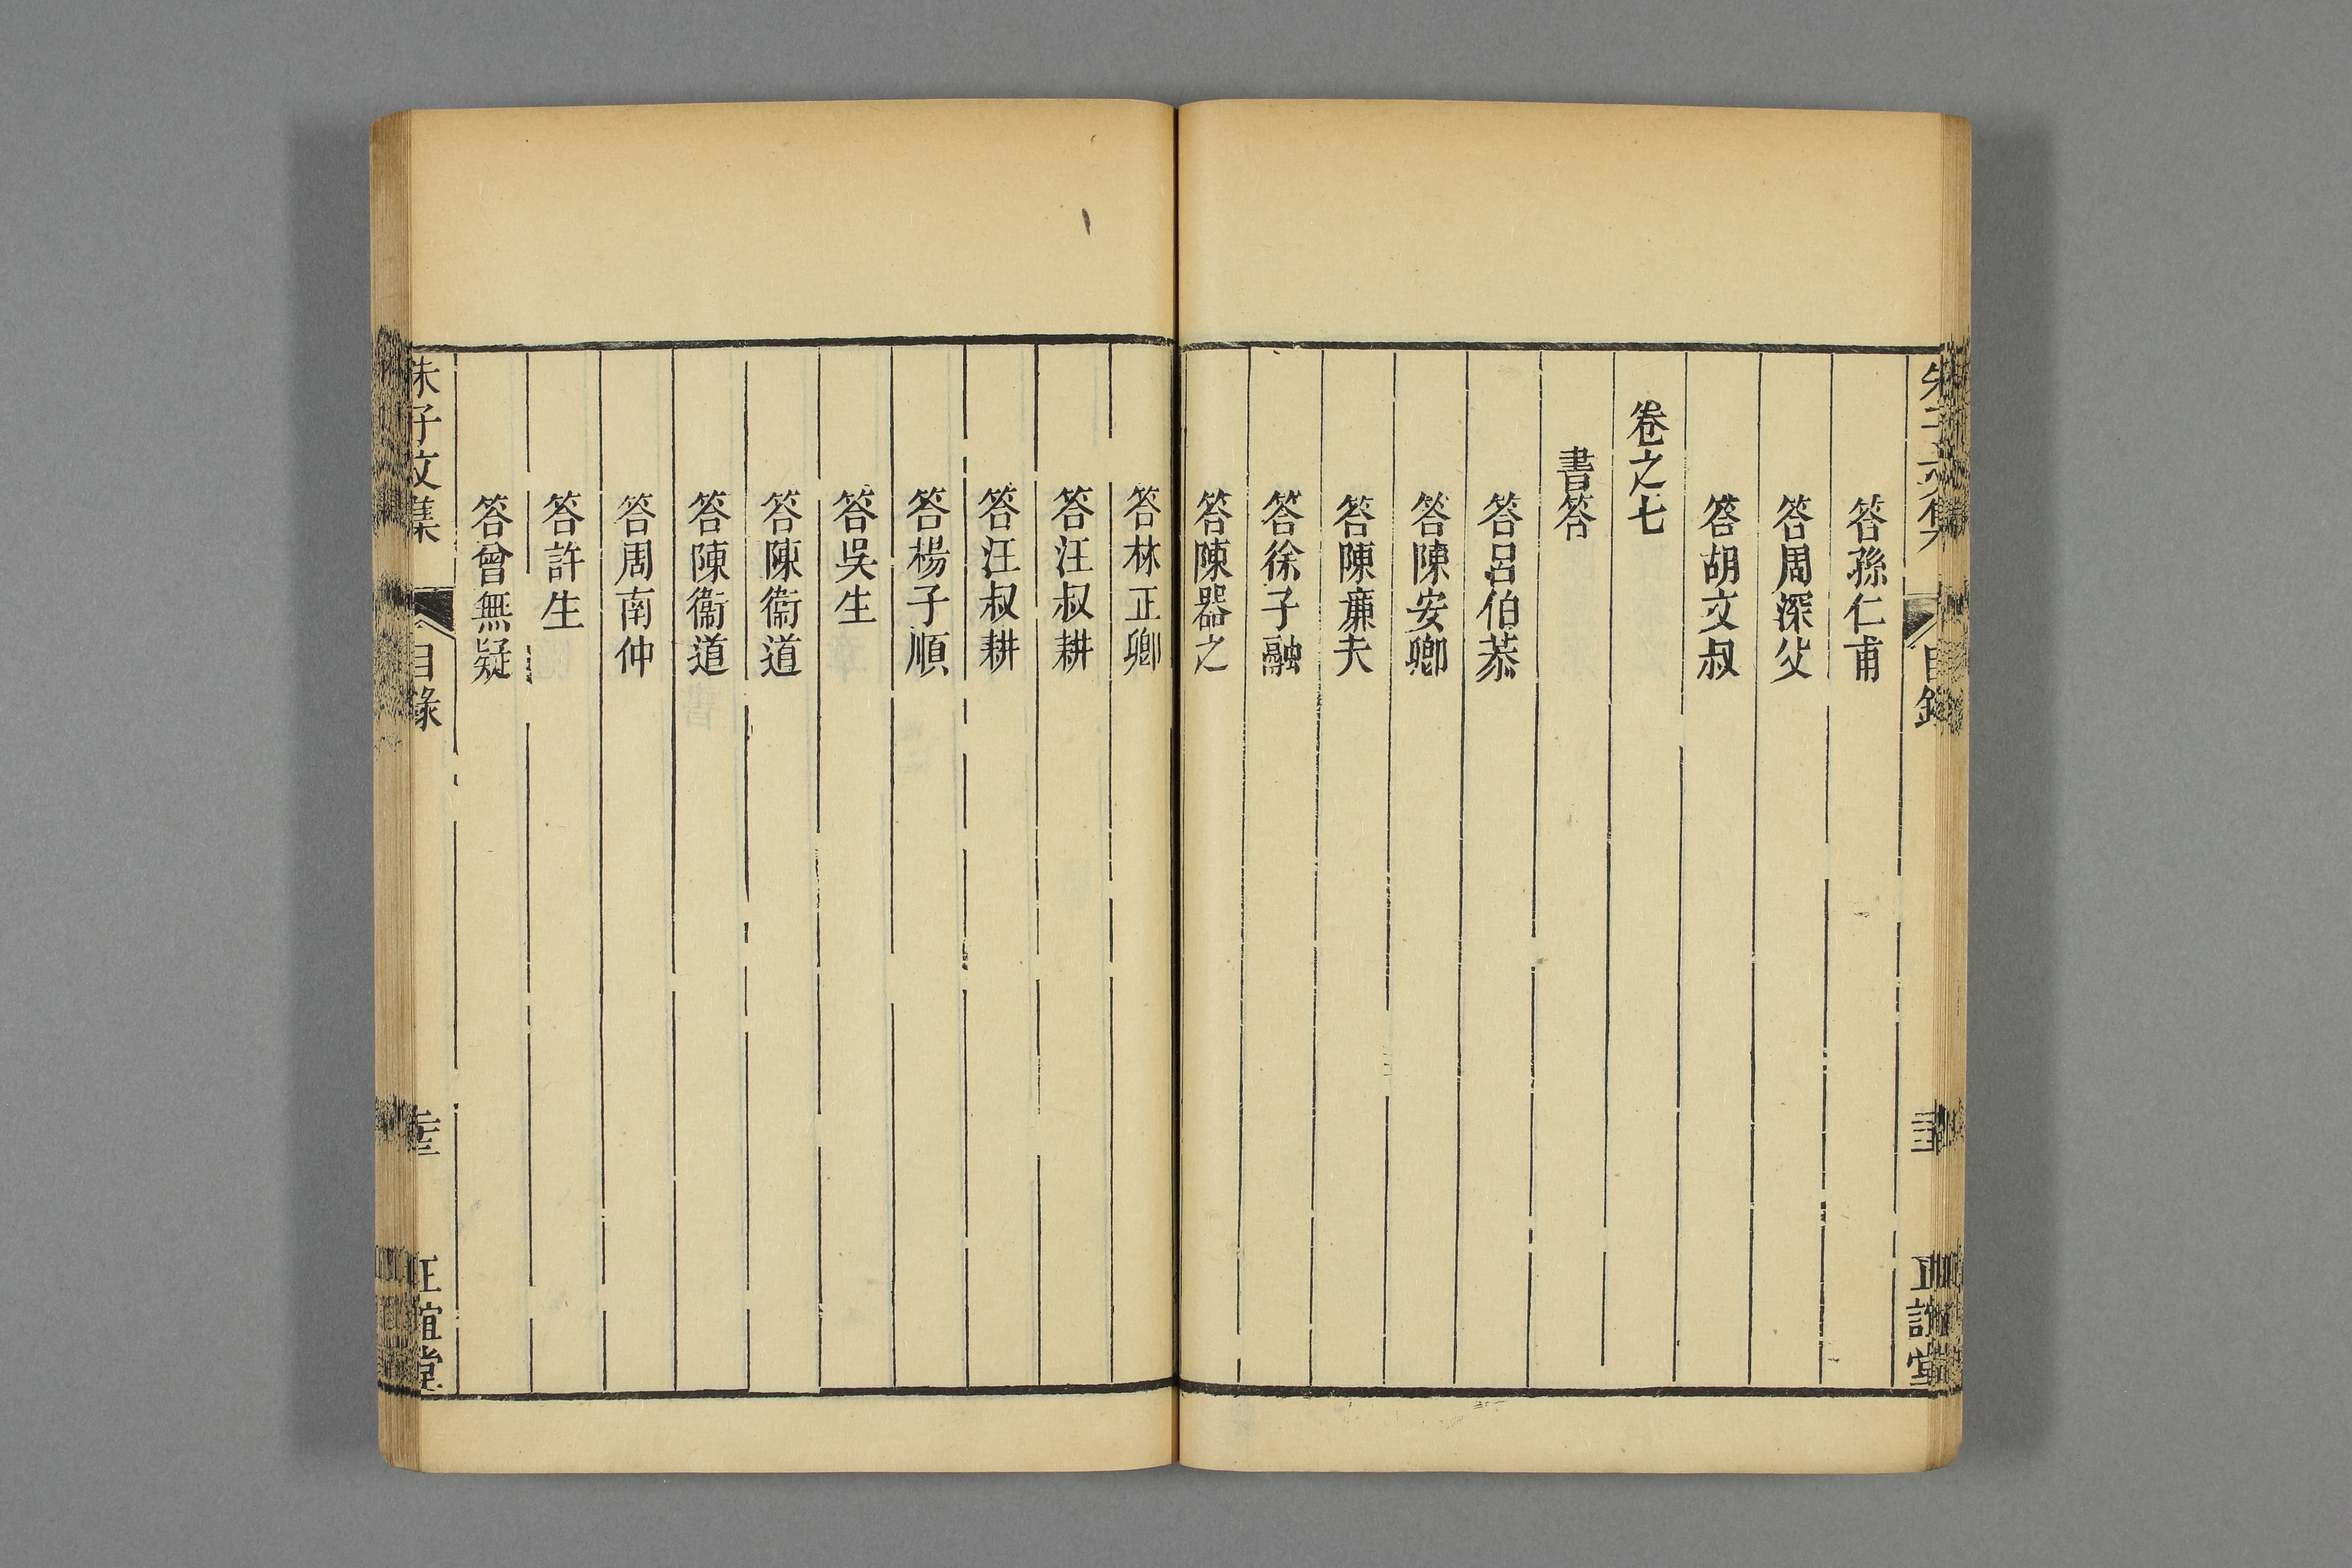 答孫仁甫
答周深父
答胡文叔
卷之七
書答
答呂伯恭
答陳安卿
答陳廉夫
答徐子融
答陳器之
答林正卿
答汪叔耕
答汪叔耕
答楊子順
答吳生
答陳衞道
答陳衞道
答周南仲
答許生
答曾無疑
朱子文集
目錄
正誼堂